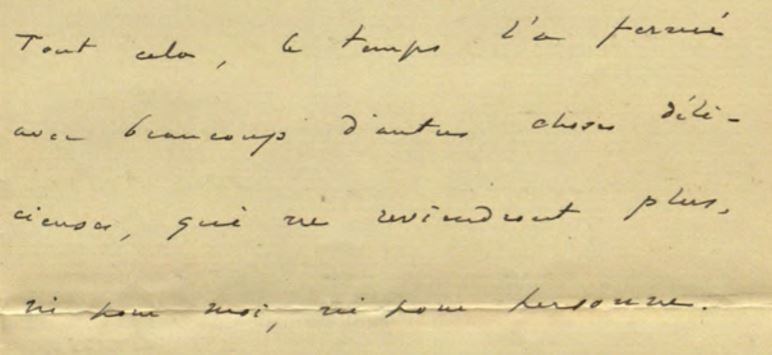 Tout cela, le temps l'a fermé
avec beaucoup d'autres choses déli-
cieuses, qui ne reviendront plus,
ni pour moi, ni pour personne.